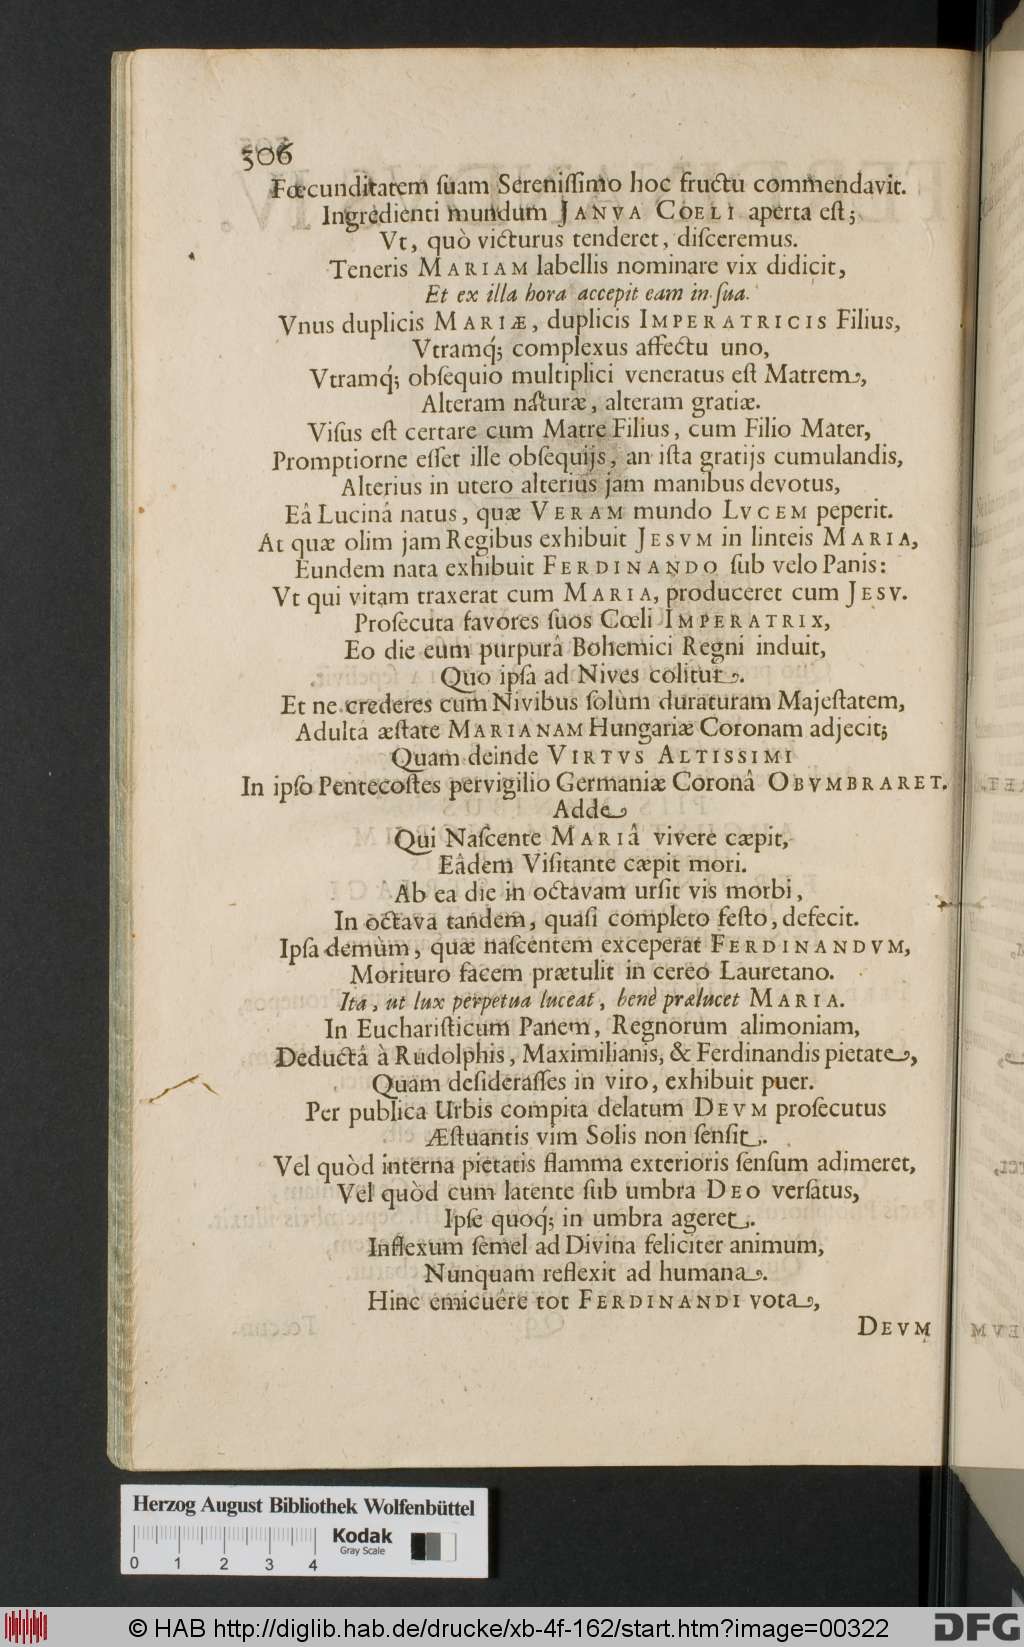 306
Fœcunditatem ſuam Sereniſſimo hoc fructu commendavit.
Ingredienti mundum JANVA COELI aperta eſt;
Vt, quò victurus tenderet, diſceremus.
Teneris MARIAM labellis nominare vix didicit,
Et ex illa hora accepit eam in ſua.
Vnus duplicis MARIÆ, duplicis IMPERATRICIS Filius,
Vtramq́; complexus affectu uno,
Vtramq́; obſequio multiplici veneratus eſt Matrem,
Alteram naturæ, alteram gratiæ.
Viſus eſt certare cum Matre Filius, cum Filio Mater,
Promptiorne eſſet ille obſequijs, an iſta gratijs cumulandis,
Alterius in utero alterius jam manibus devotus,
Eâ Luciná natus, quæ VERAM mundo LVCEM peperit.
At quæ olim jam Regibus exhibuit JESVM in linteis MARIA,
Eundem nata exhibuit FERDINANDO ſub velo Panis:
Vt qui vitam traxerat cum MARIA, produceret cum JESV.
Proſecuta favores ſuos Cœli IMPERATRIX,
Eo die eum purpurâ Bohemici Regni induit,
Quo ipſa ad Nives colitur.
Et ne crederes cum Nivibus ſolùm duraturam Majeſtatem,
Adultá æſtate MARIANAM Hungariæ Coronam adjecit;
Quam deinde VIRTVS ALTISSIMI
In ipſo Pentecoſtes pervigilio Germaniæ Coronâ OBVMBRARET.
Adde
Qui Naſcente MARIÂ vivere cæpit,
Eâdem Viſitante cæpit mori.
Ab ea die in octavam urſit vis morbi,
In octava tandem, quaſi completo feſto, defecit.
Ipſa demùm, quæ naſcentem exceperat FERDINANDVM,
Morituro facem prætulit in cereo Lauretano.
Ita, ut lux perpetua luceat, benè prælucet MARIA.
In Euchariſticum Panem, Regnorum alimoniam,
Deductâ à Rudolphis, Maximilianis, & Ferdinandis pietate,
Quam deſideraſſes in viro, exhibuit puer.
Per publica Urbis compita delatum DEVM proſecutus
Æſtuantis vim Solis non ſenſit.
Vel quòd interna pietatis flamma exterioris ſenſum adimeret,
Vel quòd cum latente ſub umbra DEO verſatus,
Ipſe quoq́; in umbra ageret.
Inflexum ſemel ad Divina feliciter animum,
Nunquam reflexit ad humana.
Hinc emicuêre tot FERDINANDI vota,
DEVM
Herzog August Bibliothek Wolfenbüttel
Kodak
Gray Scale
0 1 2 3 4
© HAB http://diglib.hab.de/drucke/xb-4f-162/start.htm?image=00322
DFG